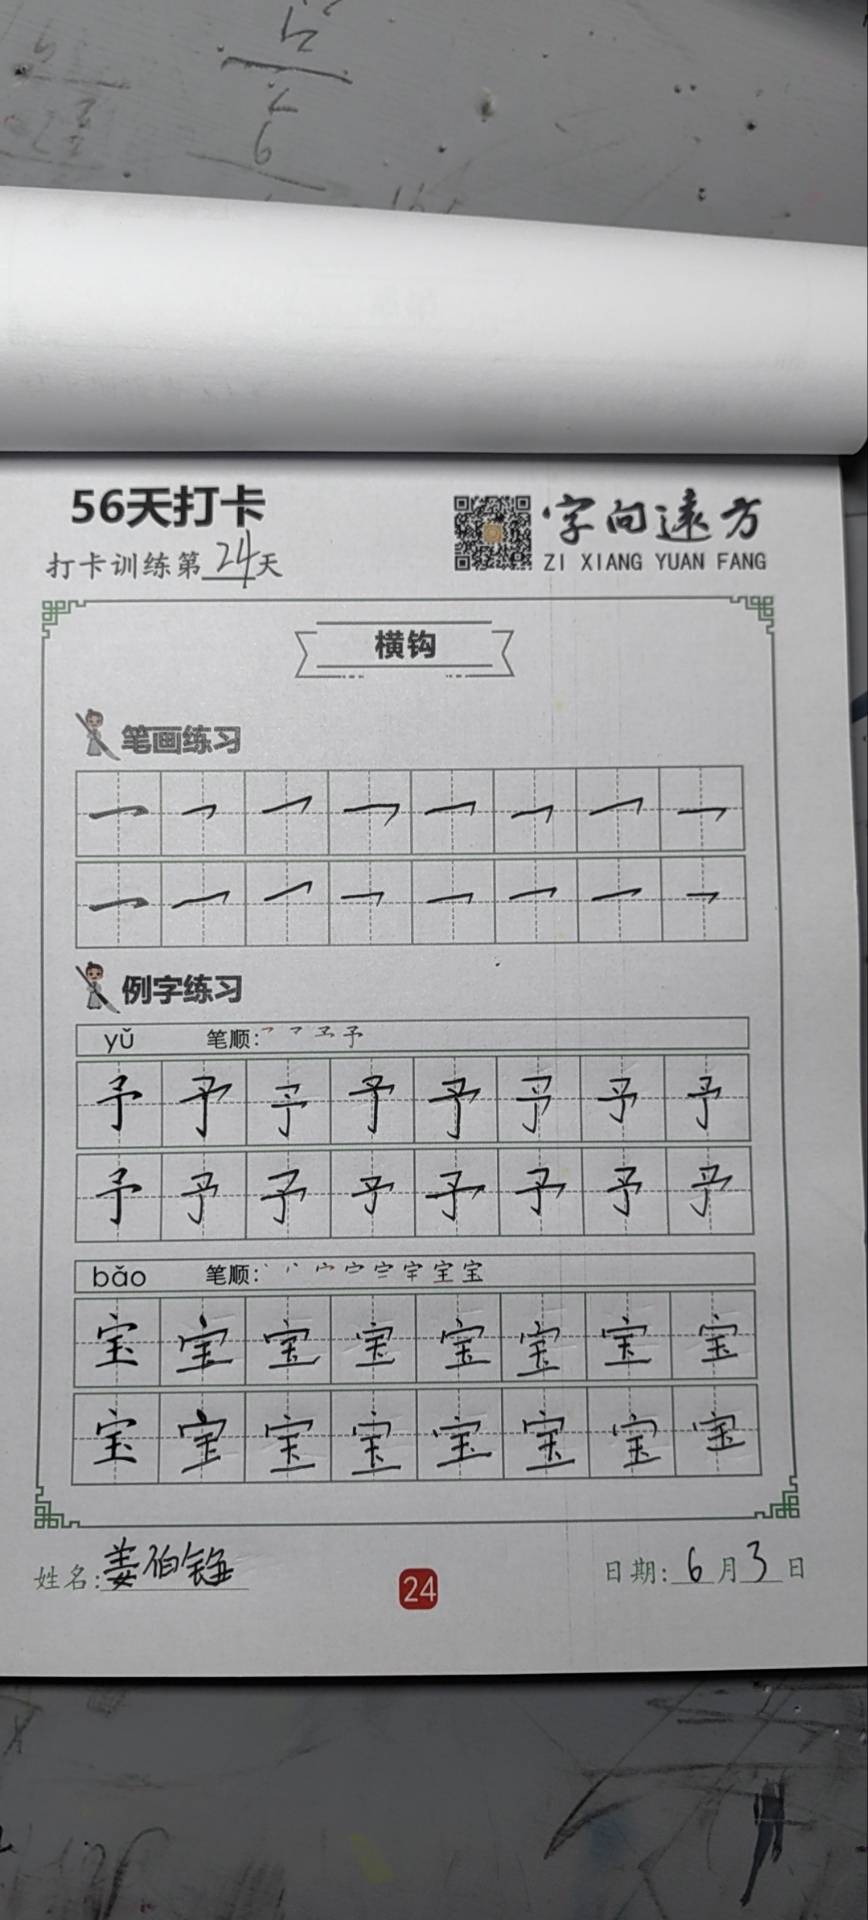 56天打卡
字向遠方
打卡训练第24天
ZI XIANG YUAN FANG
横钩
笔画练习
例字练习
yǔ 笔顺:
予 予 予 予 予 予 予 予
予 予 予 予 予 予 予 予
bǎo 笔顺:
宝 宝 宝 宝 宝 宝 宝 宝
宝 宝 宝 宝 宝 宝 宝 宝
姓名:姜伯
24
日期:6月3日